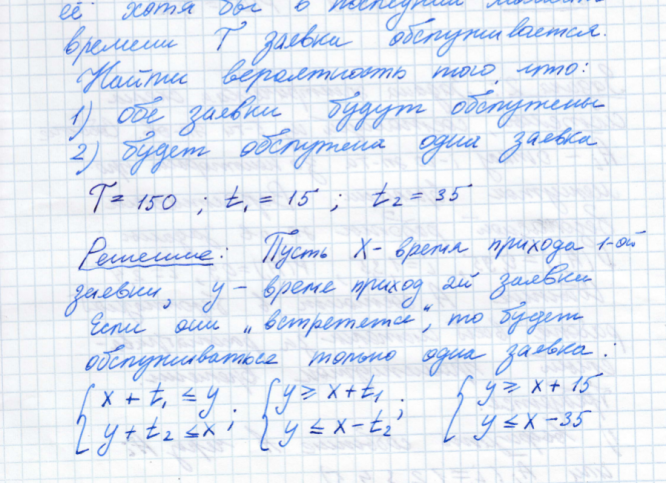 её хотя бы в последний момент
времени T заявка обслуживается.
Найти вероятность того, что:
1) обе заявки будут обслужены
2) будет обслужена одна заявка
T = 150 ; t₁ = 15 ; t₂ = 35
Решение: Пусть X - время прихода 1-ой
заявки, y - время приход 2й заявки
Если они "встретятся", то будет
обслуживаться только одна заявка:
{ x + t₁ ≤ y ; { y ≥ x + t₁ ; { y ≥ x + 15
{ y + t₂ ≤ x { y ≤ x - t₂ { y ≤ x - 35